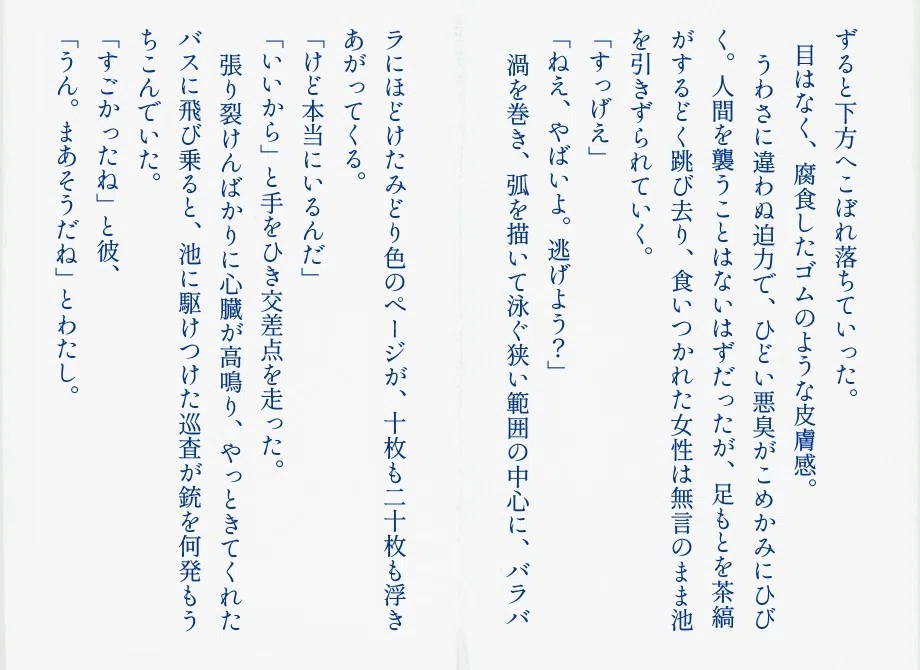 ずると下方へこぼれ落ちていった。
目はなく、腐食したゴムのような皮膚感。
うわさに違わぬ迫力で、ひどい悪臭がこめかみにひび
く。人間を襲うことはないはずだったが、足もとを茶縞
がするどく跳び去り、食いつかれた女性は無言のまま池
を引きずられていく。
「すっげえ」
「ねえ、やばいよ。逃げよう?」
渦を巻き、弧を描いて泳ぐ狭い範囲の中心に、バラバ
ラにほどけたみどり色のページが、十枚も二十枚も浮き
あがってくる。
「けど本当にいるんだ」
「いいから」と手をひき交差点を走った。
張り裂けんばかりに心臓が高鳴り、やっときてくれた
バスに飛び乗ると、池に駆けつけた巡査が銃を何発もう
ちこんでいた。
「すごかったね」と彼、
「うん。まあそうだね」とわたし。